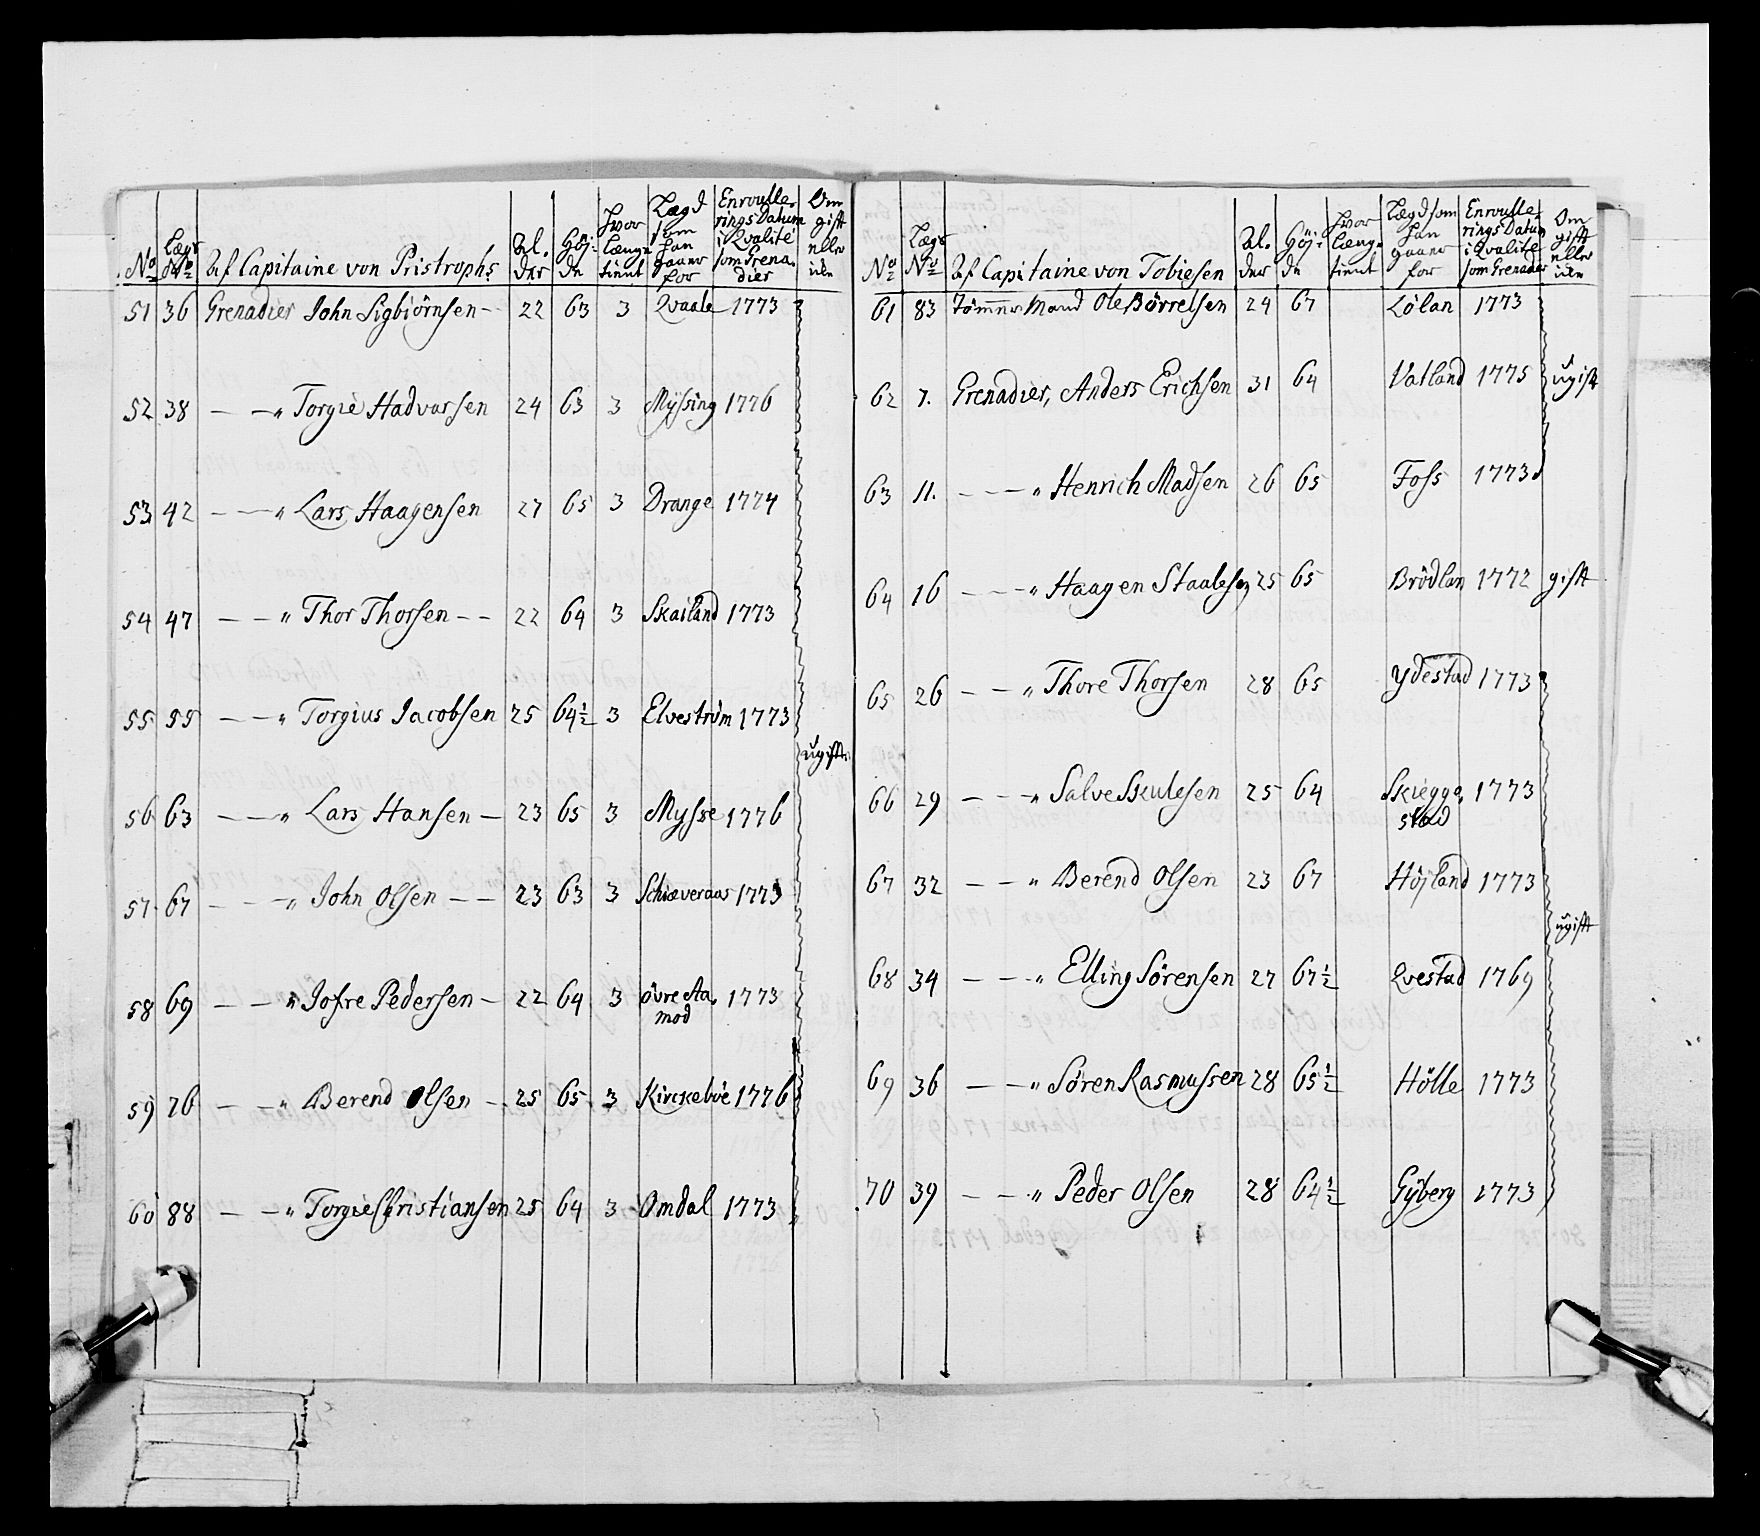 No Lægs No Af Capitaine von Pristrophs Al. der Höj: de Hvor længe tient Lægd som han gaaer for Enroulle. rings Datum i Qvalité som Grena. dier Om gift eller ikke
51 36 Grenadier John Sigbiörnsen - 22 63 3 Qvaale 1773
52 38 — — " Torgie Hadvarsen 24 63 3 Myssing 1776
53 42 — — " Lars Haagensen 27 65 3 Drange 1774
54 47 — — " Thor Thorsen - - 22 64 3 Skailand 1773
55 55 — — " Torgius Jacobsen 25 64½ 3 Elvestrøm 1773
ugifte
56 63 — — " Lars Hansen — 23 65 3 Mysse 1776
57 67 — — " John Olsen — — 23 63 3 Schiæveraas 1773
58 69 — — " Jofre Pedersen - 22 64 3 övre Aa.
mod 1773
59 76 — — " Berend Olsen - 25 65 3 Kirckeböe 1776
60 88 — — " Torgie Christiansen 25 64 3 Omdal 1773
No Lægs No Af Capitaine von Tobiesen Al. der Höj: de Hvor længe tient Lægd som han gaaer for Enroulle rings Datum i Qvalité som Grenadier Om gift eller ikke
61 83 Tömmer Mand Ole Börrelsen 24 67 Lölan 1773
62 7. Grenadier, Anders Erichsen 31 64 Vatland 1775 ugift
63 11. — — " Henrich Madsen 26 65 Foss 1773
64 16 — — " Haagen Staalesen 25 65 Brödlan 1772 gift
65 26 — — " Thore Thorsen 28 65 Ydestad 1773
66 29 — — " Salve Skulesen 25 64 Skiegge,
stad 1773
67 32 — — " Berend Olsen 23 67 Höjland 1773
ugift
68 34 — — " Elling Sörensen 27 67½ Qvestad 1769
69 36 — — " Sören Rasmussen 28 65½ Hölle 1773
70 39 — — " Peder Olsen 28 64½ Gyberg 1773